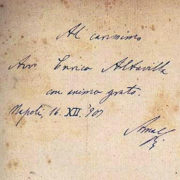 Al carissimo
Avv Enrico Altavilla
con animo grato.
Napoli, 16. XII. 901